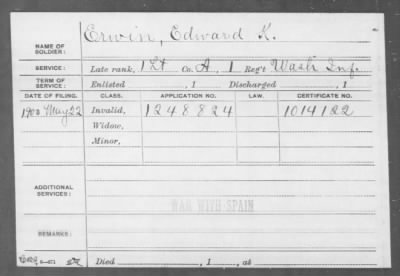 NAME OF SOLDIER: Erwin, Edward K.
SERVICE: Late rank, 1 Lt Co. A, 1 Reg't Wash Inf.
TERM OF SERVICE: Enlisted , 1 Discharged , 1
DATE OF FILING. CLASS. APPLICATION NO. LAW. CERTIFICATE NO.
1900 May 22 Invalid, 1248824 1014122
Widow,
Minor,
ADDITIONAL SERVICES:
WAR WITH SPAIN
REMARKS:
Died , 1 , at